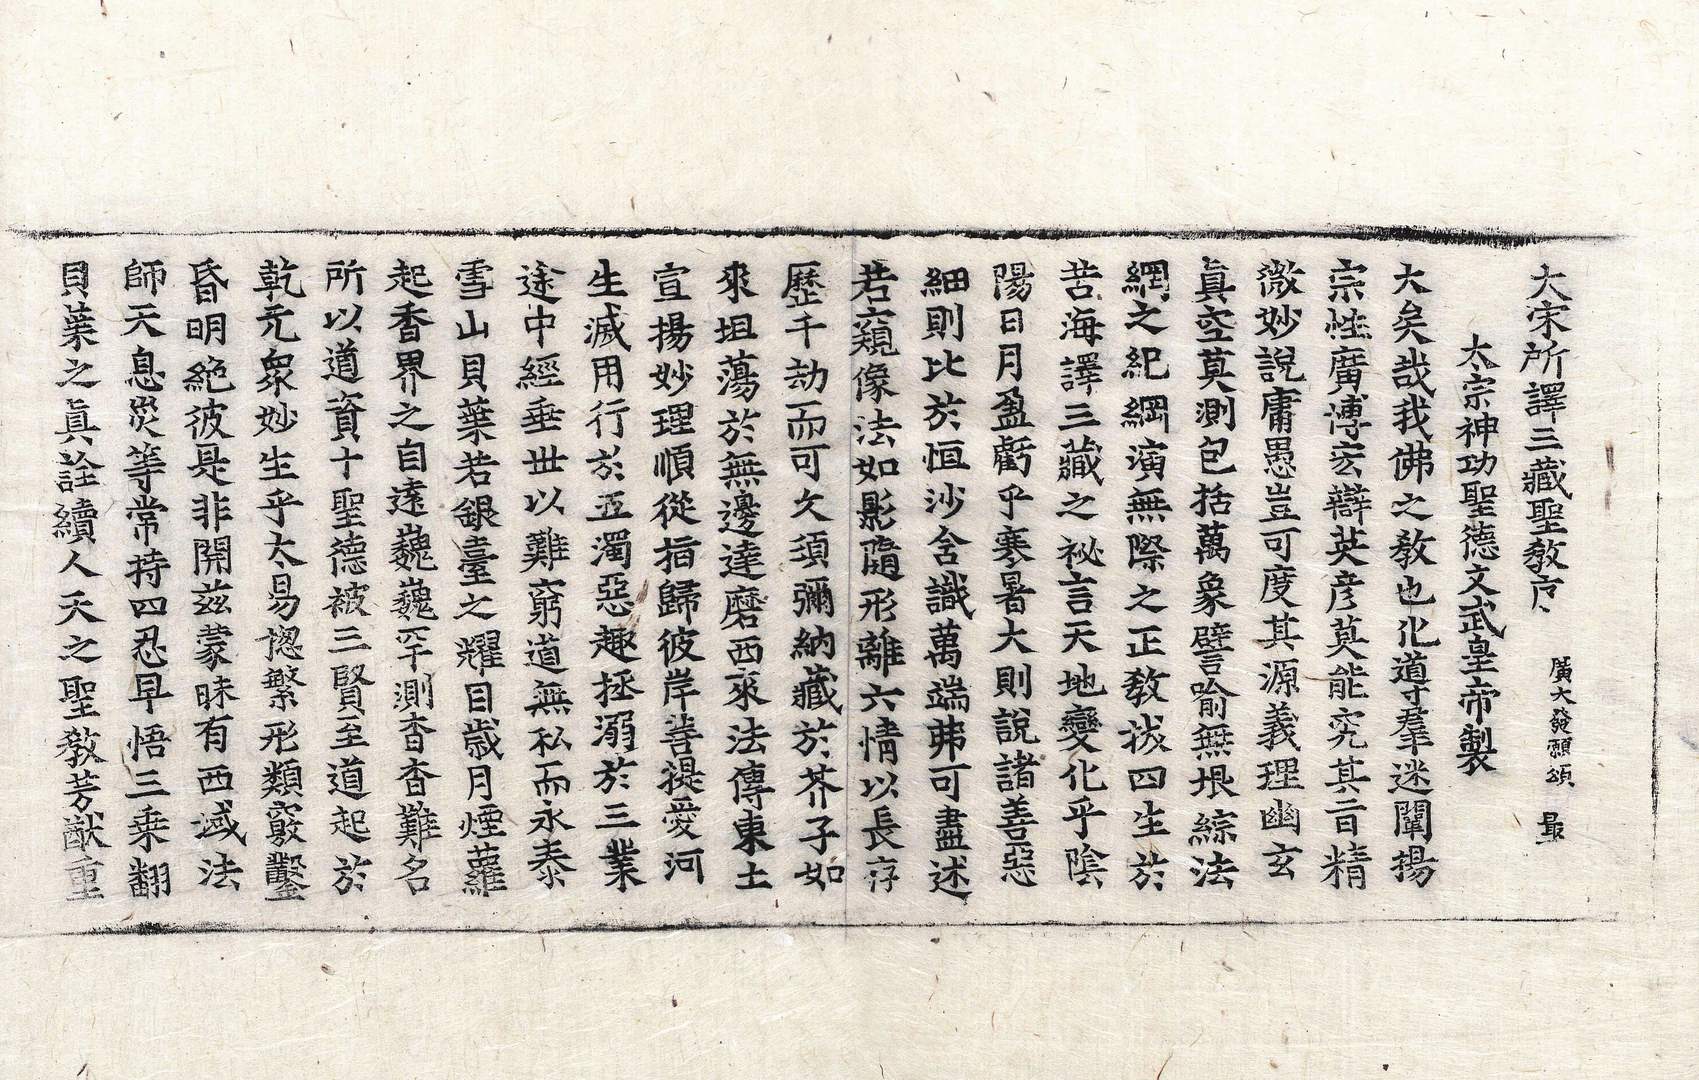 大宋所譯三藏聖敎序 廣大發願頌 最
太宗神功聖德文武皇帝製
大矣哉我佛之敎也化導羣迷闡揚
宗性廣博宏辯英彦莫能究其旨精
微妙說庸愚豈可度其源義理幽玄
眞空莫測包括萬象譬喻無垠綜法
網之紀綱演無際之正敎拔四生於
苦海譯三藏之祕言天地變化乎陰
陽日月盈虧乎寒暑大則說諸善惡
細則比於恒沙含識萬端弗可盡述
若窺像法如影隨形離六情以長存
歷千劫而可久須彌納藏於芥子如
來坦蕩於無邊達磨西來法傳東土
宣揚妙理順從指歸彼岸菩提愛河
生滅用行於五濁惡趣拯溺於三業
途中經垂世以難窮道無私而永泰
雪山貝葉若銀臺之耀目歲月煙蘿
起香界之自遠巍巍罕測杳杳難名
所以道資十聖德被三賢至道起於
乾元衆妙生乎太易惣繁形類竅鑿
昏明絶彼是非開玆蒙昧有西域法
師天息災等常持四忍早悟三乗翻
貝葉之眞詮續人天之聖敎芳猷重